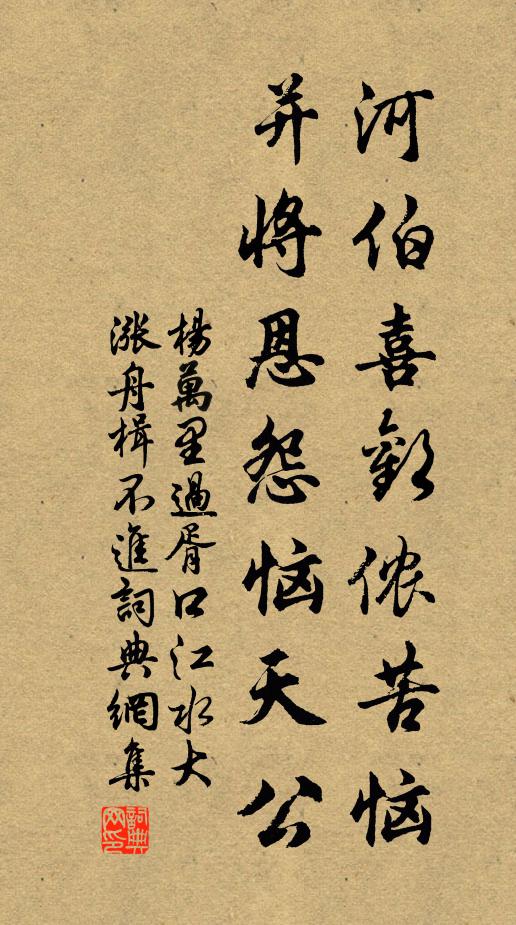 河伯喜歡侬苦恼
并將恩怨恼天公
楊萬里過胥口江水大
漲舟楫不進詞典網集
詞典
网印